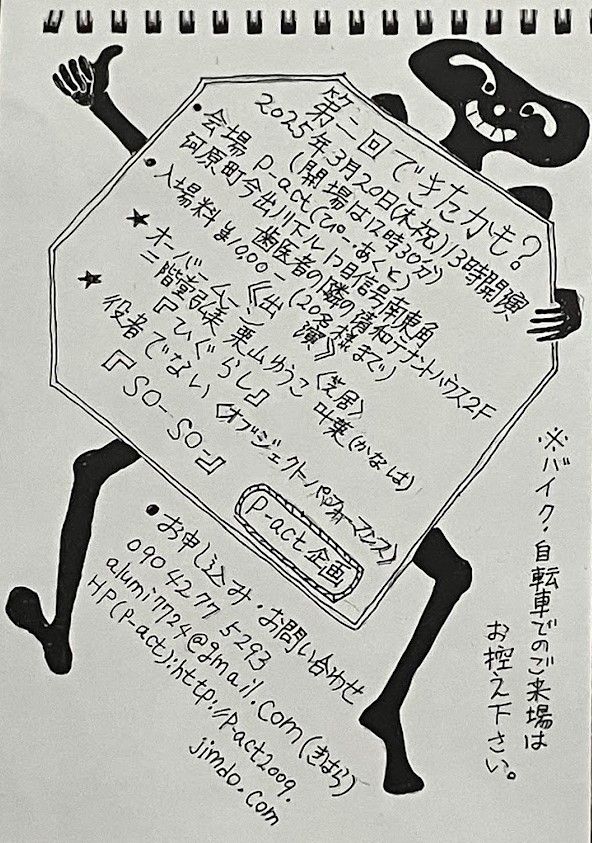 第二回できたかも?
2025年3月20日(木祝)13時開演
(開場は12時30分)
•会場 p-act(ぴー.あくと)
河原町今出川下ル1つ目信号南東角
歯医者の隣の清和テナントハウス2F
•入場料 ¥1000ー(20名様まで)
《出演》
★オーバームーン《芝居》
二階堂弘美 栗山ゆうこ 叶葉(かなは)
『ひぐらし』
★役者でない《オブジェクトパフォーマンス》
『SO-SO』
p-act企画
•お申し込み・お問い合わせ
090 4277 5293
alumi7724@gmail.com(きはら)
HP(P-act):http://p-act2009.
jimdo.com
※バイク・自転車でのご来場は
お控え下さい。